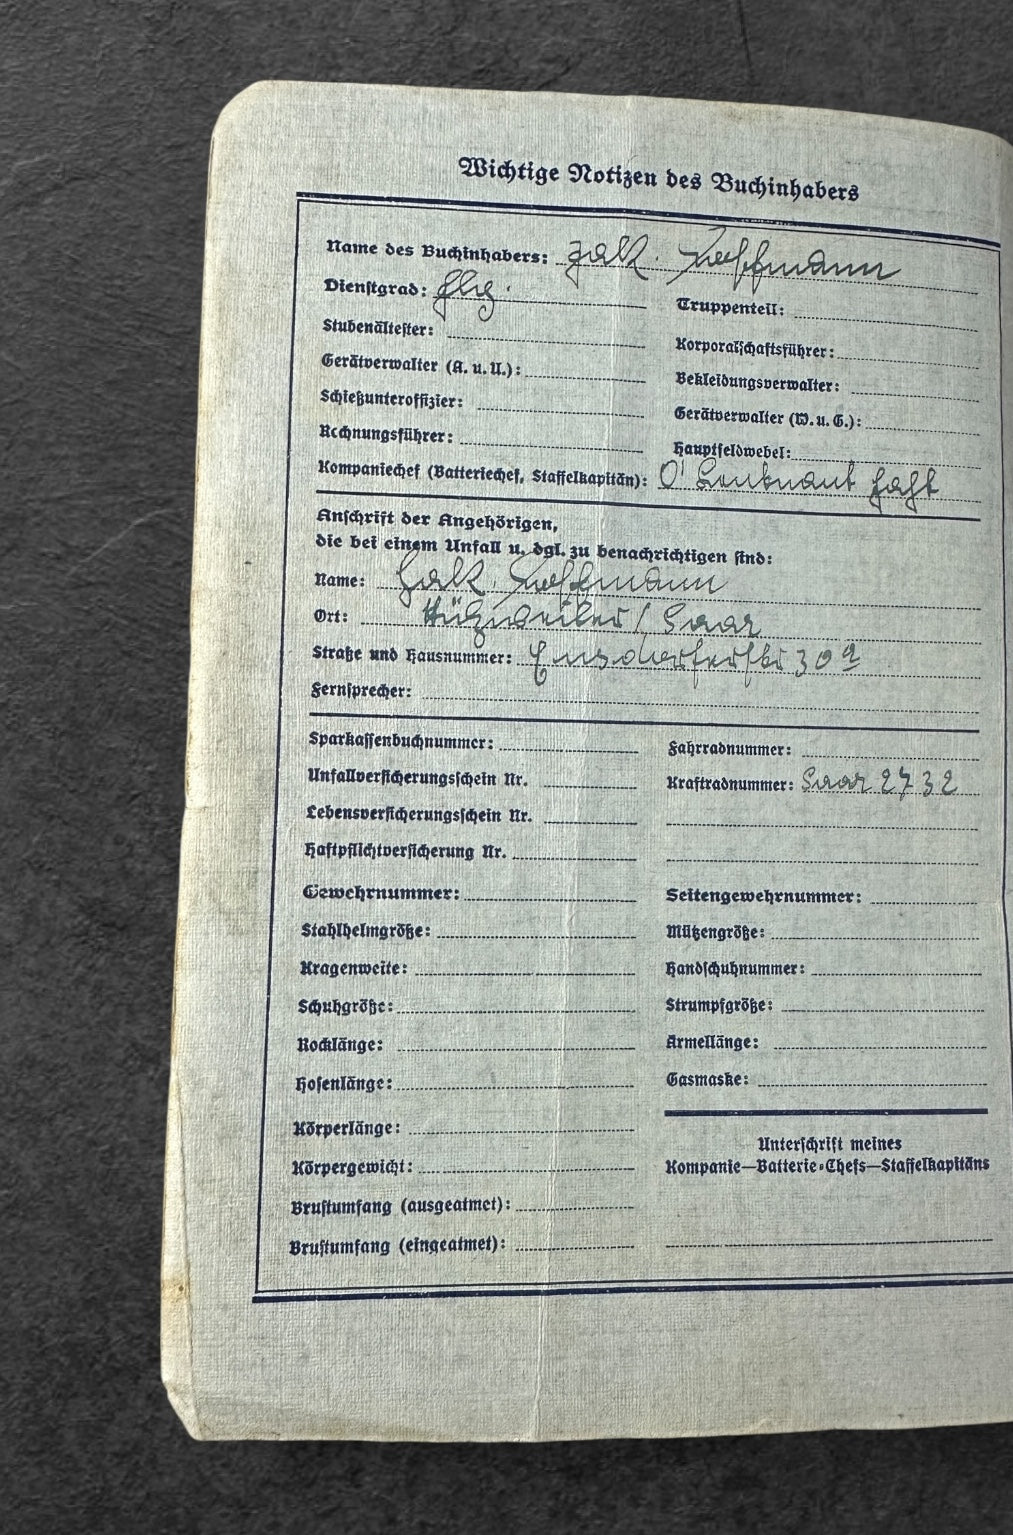 Wichtige Notizen des Buchinhabers
Name des Buchinhabers: Hoffmann
Dienstgrad: Flg.
Truppenteil:
Stubenältester:
Korporalschaftsführer:
Gerätverwalter (A. u. U.):
Bekleidungsverwalter:
Schießunteroffizier:
Gerätverwalter (W. u. G.):
Rechnungsführer:
Hauptfeldwebel:
Kompaniechef (Batteriechef, Staffelkapitän): O' Leutnant
Anschrift der Angehörigen,
die bei einem Unfall u. dgl. zu benachrichtigen sind:
Name: Hoffmann
Ort: / Saar
Straße und Hausnummer: Ensdorferstr 30a
Fernsprecher:
Sparkassenbuchnummer:
Fahrradnummer:
Unfallversicherungsschein Nr.
Kraftradnummer: Saar 2732
Lebensversicherungsschein Nr.
Haftpflichtversicherung Nr.
Gewehrnummer:
Seitengewehrnummer:
Stahlhelmgröße:
Mützengröße:
Kragenweite:
Handschuhnummer:
Schuhgröße:
Strumpfgröße:
Rocklänge:
Ärmellänge:
Hosenlänge:
Gasmaske:
Körperlänge:
Unterschrift meines
Körpergewicht:
Kompanie—Batterie-Chefs—Staffelkapitäns
Brustumfang (ausgeatmet):
Brustumfang (eingeatmet):